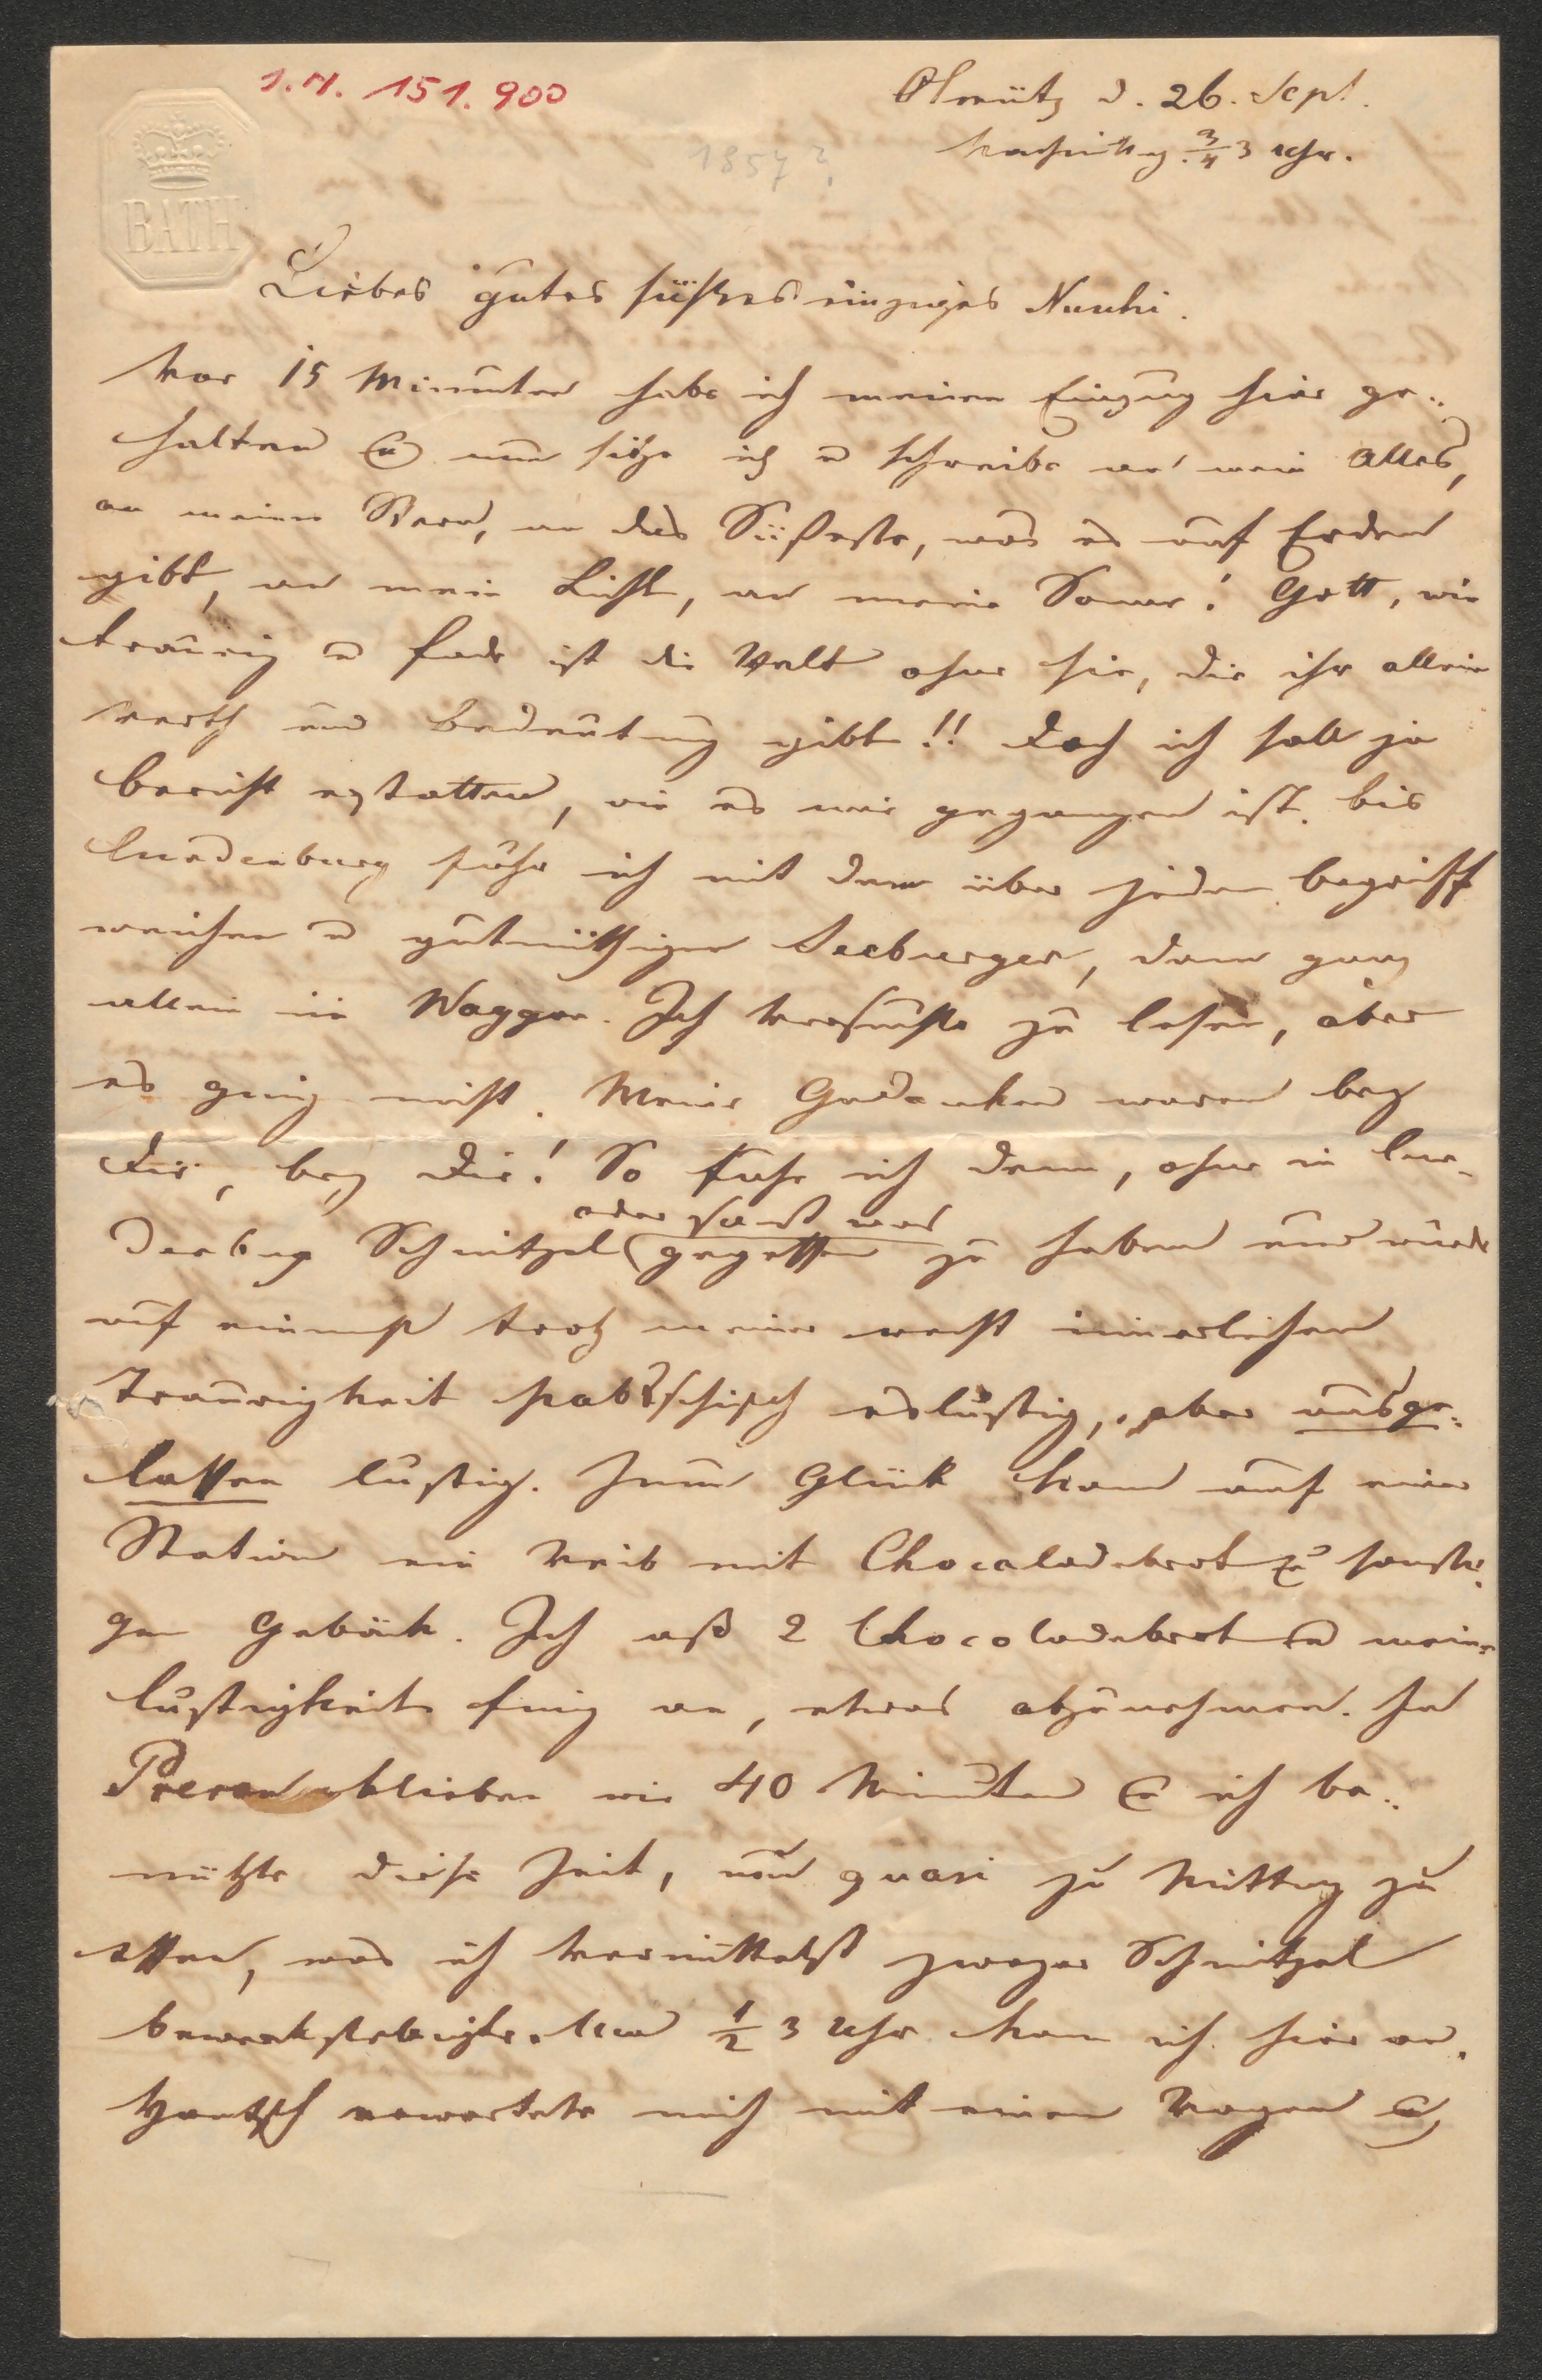 I.N. 151.900
Olmütz d. 26. Sept.
Nachmittag. 3/4 3 Uhr.
1857?
BATH
Liebes gutes süßes einziges Nuuhi.
Vor 15 Minuten habe ich meinen Einzug hier ge-
halten u nun sitze ich u schreibe an mein Alles,
an meinen Stern, an das Süßeste, was es auf Erden
gibt, an mein Licht, an meine Sonne! Gott, wie
traurig u fade ist die Welt ohne sie, die ihr allein
werth und Bedeutung gibt!! Doch ich soll ja
Bericht erstatten, wie es mir gegangen ist. bis
Lundenburg fuhr ich mit dem über jeden Begriff
weichen u gutmüthigen Seeburger, dann ganz
allein im Waggon. Ich versuchte zu lesen, aber
es ging nicht. Meine Gedanken waren bey
Dir, bey Dir! So fuhr ich denn, ohne in Lun-
oder sonst was
denburg Schnitzel gegessen zu haben und wurde
auf einmal trotz meiner recht innerlichen
Traurigkeit eslustig, aber ausge-
lassen lustig. Zum Glück kam auf einer
Station ein Weib mit Chocaladebrot u sonsti-
gen Gebäck. Ich aß 2 Chocoladebrot u meine
Lustigkeit fing an, etwas abzunehmen. In
Prerau blieben wir 40 Minuten u ich be-
nützte diese Zeit, um quasi zu Mittag zu
essen, was ich vermittelst zweyer Schnitzel
bewerkstelligte. Um 1/2 3 Uhr kam ich hier an.
erwartete mich mit einen Wagen u